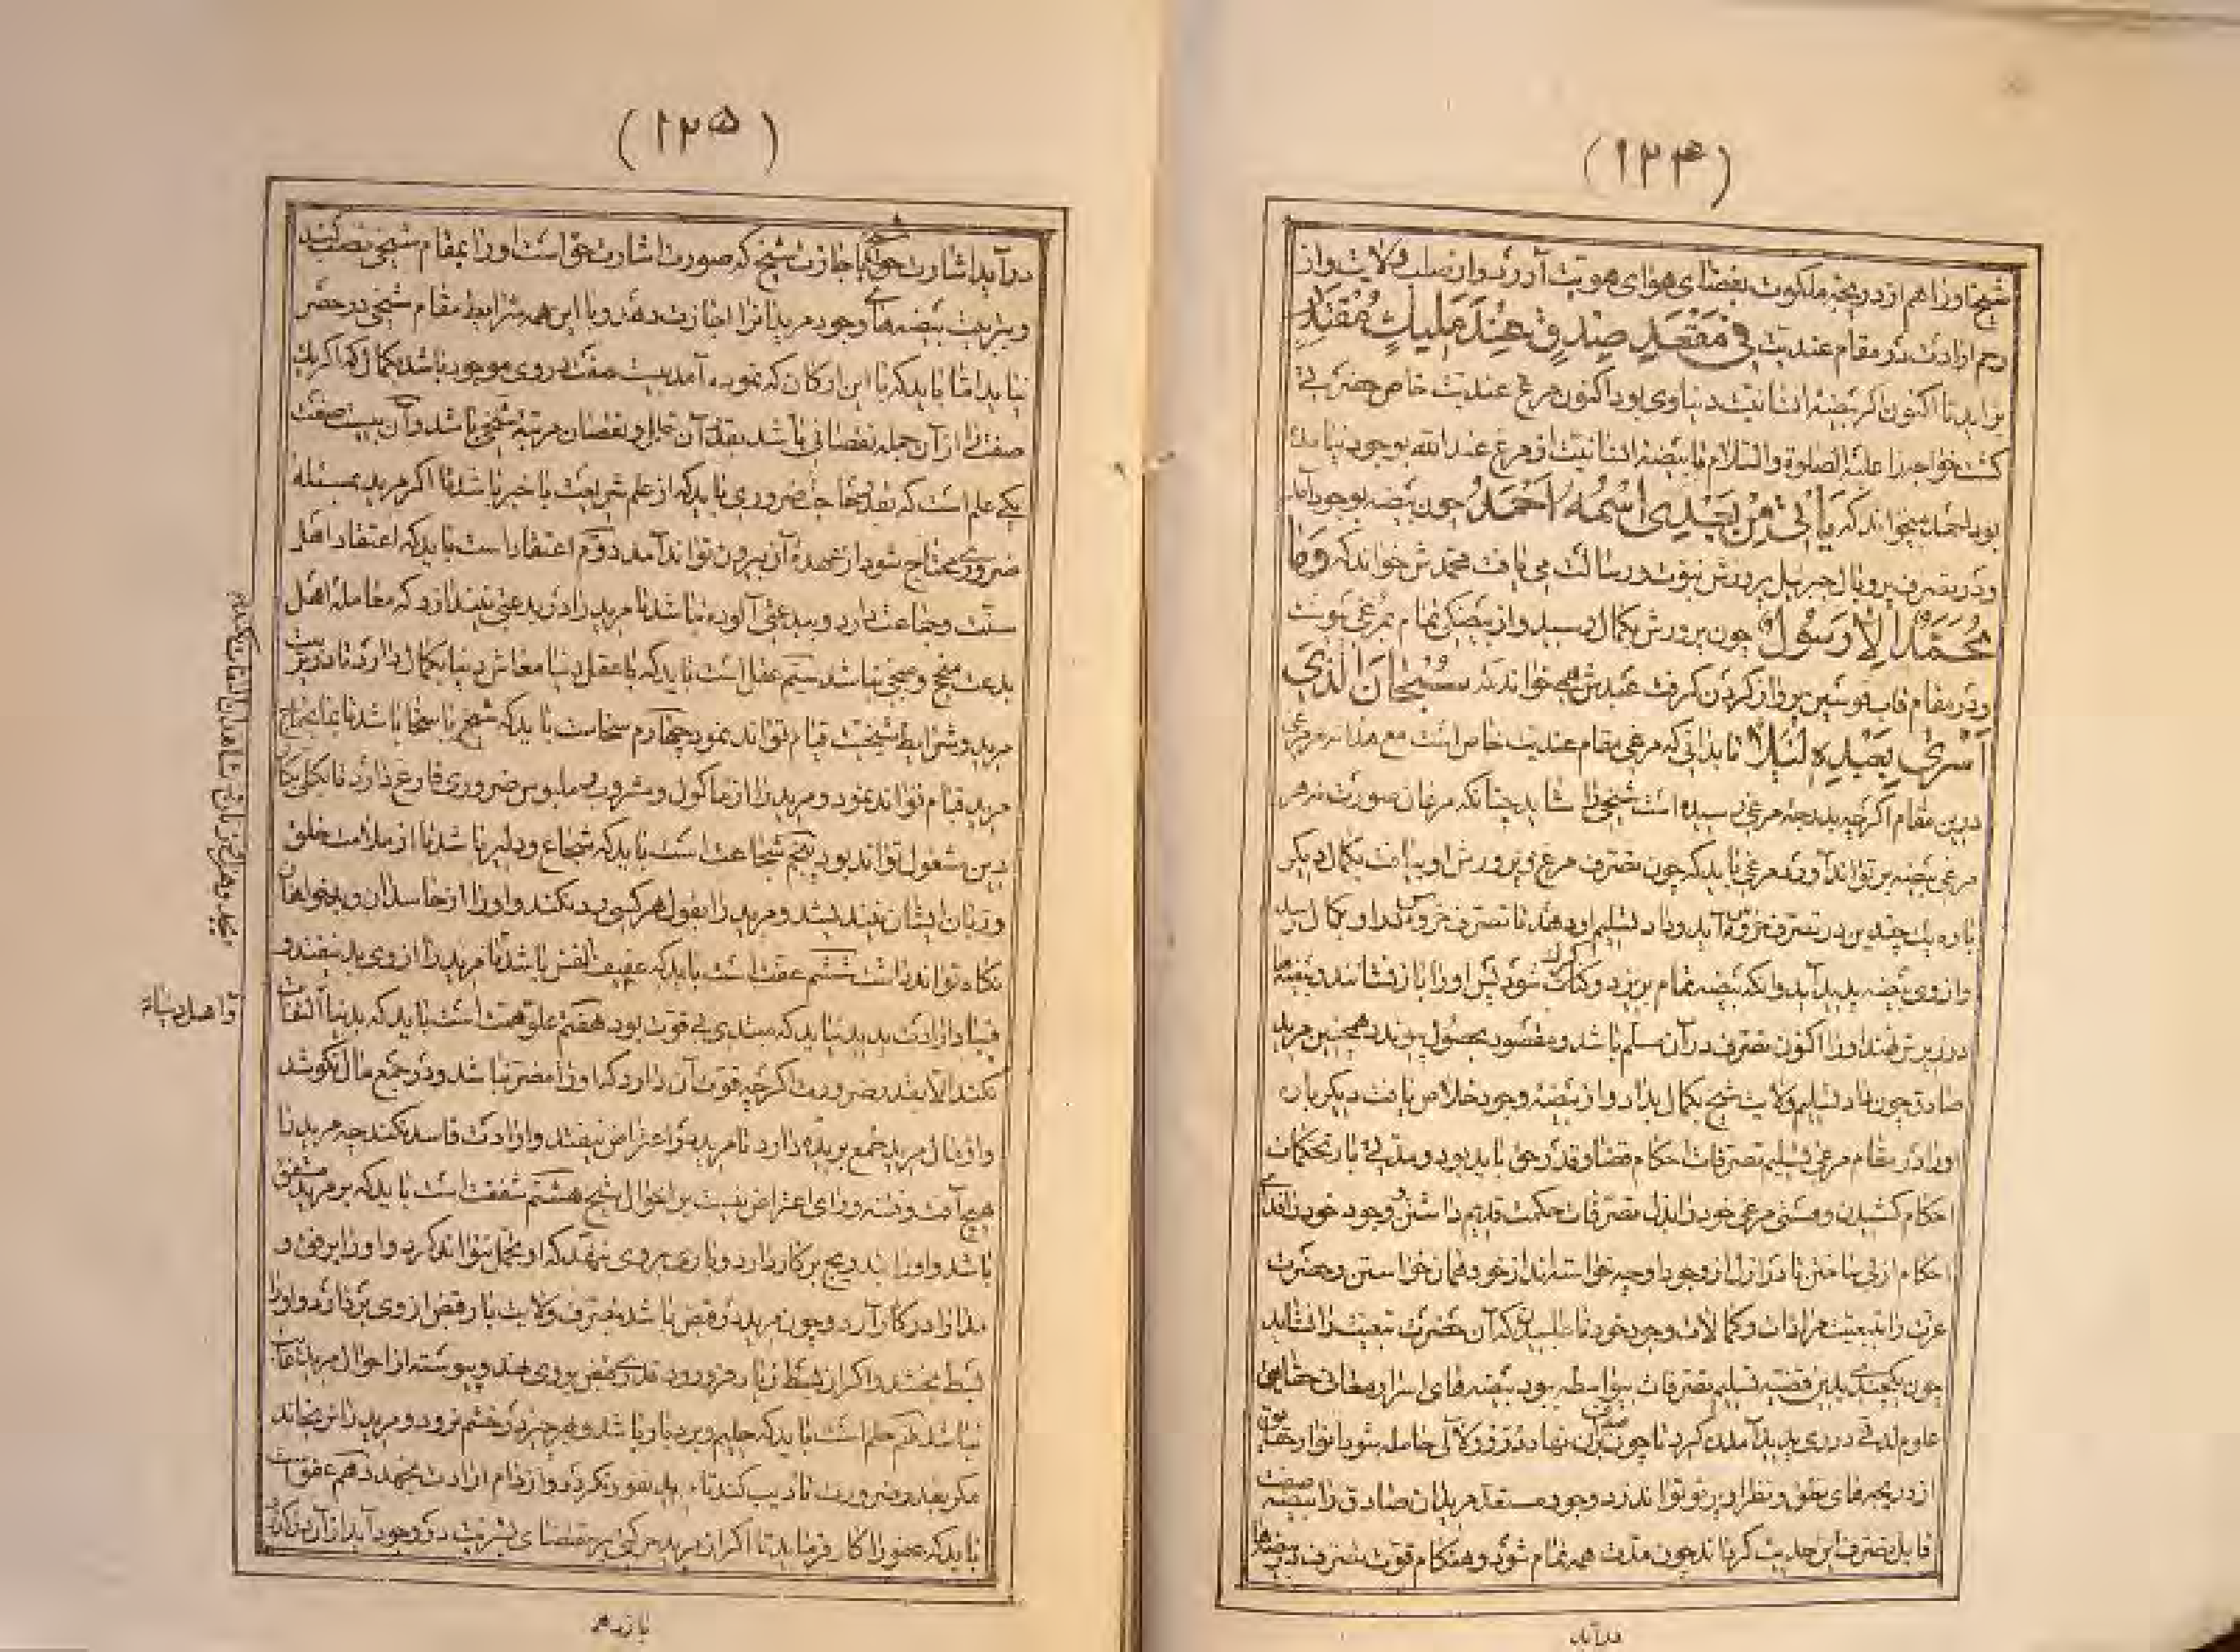 (۱۲۴)
شیخ او را هم از دریچه ملکوت بفضای هوای هویت آورد و از صلب ولایت و از
رحم ارادت در مقام عندیت فی مَقْعَدِ صِدْقٍ عِنْدَ مَلیكٍ مُقْتَدِرٍ
بزاید تا اکنون اگر بیضه انسانیت دنیاوی بود اکنون مرغ عندیت خاص حضرتی
گشت خواجه را علیه الصلوة والسلام تا بیضه انسانیت از مرغ عند الله بوجود نیامده
بود احمد میخواند که یَأْتی مِنْ بَعْدِی اسْمُهُ اَحْمَدُ چون بیضه بوجود آمد
و در تصرف پر و بال جبریل پرورش نبوت و رسالت می یافت محمدش خواند که وَمَا
مُحَمَّدٌ اِلاّ رَسُولٌ چون پرورش بکمال رسید و از بیضگی تمام بمرغی پیوست
و در مقام قاب قوسین پرواز کردن گرفت عبدش میخواند که سُبْحَانَ الَّذی
اَسْریٰ بِعَبْدِهِ لَیْلًا تا بدانی که مرغی مقام عندیت خاص است مع هذا نه هر مرغی
درین مقام اگرچه بدرجه مرغی رسیده است شیخی را شاید چنانکه مرغان صورت نه هر
مرغی بیضه بر تواند آورد مرغی باید که چون تصرف مرغ و پرورش او یافت بکمال دیگر
باره یک چندین در تصرف خروه آید و داد تسلیم او دهد تا تصرف خروه کند او بکمال رسد
و از وی بیضه پدید آید و آنگه بیضه تمام بریزد و کرک شود پس او را باز نشانند و بیضه‌ها
در زیر نهند او را اکنون تصرف در آن مسلم باشد و مقصود بحصول پیوندد همچنین مرید
صادق چون داد تسلیم ولایت شیخ بکمال بداد و از بیضه وجود خلاص یافت دیگر باره
او را در مقام مرغی تسلیم تصرفات احکام قضا و قدر حق باید بود و مدتی بار تحکمات
احکام کشیدن و هستی مرغی خود را بذل تصرفات حکمت قدیم داشتن و وجود خود را فدای
احکام ازلی ساختن تا در ازل از وجود او چه خواسته‌اند از خود همان خواستن و حضرت
عزت را بتبعیت مرادات و کمالات وجود خود نا طلبیدن که آن حضرت تبعیت را نشاید
چون یکچندی بدین قضیه تسلیم تصرفات بیواسطه بود بیضه‌های اسرار معانی حقایق
علوم لدنی در وی پدید آمدن گیرد تا چون صدف نهاد در زور لآلی حامله شود انوار حقایق
از دریچه‌های نطق و نظر او پرتو تواند زد وجود مستعد مریدان صادق را بیضه صفت
قابل تصرف این حدیث گرداند چون مدت همه تمام شود و هنگام قوت تصرف در بیضه‌ها
درآید
(۱۲۵)
درآید اشارت حق با اجازت شیخ که صورت اشارت حق است او را بمقام شیخی نصب کند
و بتربیت بیضه‌های وجود مریدانرا اجازت دهد و با این همه شرایط مقام شیخی در حصر
نیاید اما باید که با این ارکان که نموده آمد بیست صفت در وی موجود باشد بکمال که اگر یک
صفت را از آن جمله نقصانی باشد بقدر آن خلل و نقصان مرتبه شیخی باشد و آن بیست صفت
یکی علم است که بقدر حاجت ضروری باید که از علم شریعت با خبر باشد تا اگر مرید بمسئله
ضروری محتاج شود از عهده آن بیرون تواند آمد دوم اعتقاد است باید که اعتقاد اهل
سنت و جماعت دارد و ببدعتی آلوده نباشد تا مرید را در بدعتی نیندازد که معامله اهل
بدعت منجح و منجی نباشد سیم عقل است باید که با عقل دینا معاش دنیا بکمال دارد تا در تربیت
مرید و شرایط شیخیت قیام تواند نمود چهارم سخاست باید که شیخ با سخا باشد تا بمایحتاج
مرید قیام تواند نمود و مرید را از مأکول و مشروب و ملبوس ضروری فارغ دارد تا بکلی بکار
دین مشغول تواند بود پنجم شجاعت است باید که شجاع و دلیر باشد تا از ملامت خلق
و زبان ایشان نیندیشد و مرید را بقول هر کس رد نکند و او را از حاسدان و بدخواهان
نگاه تواند داشت ششم عفت است باید که عفیف النفس باشد تا مرید را از وی بد نیفتد و
فساد ارادت پدید نیاید که مبتدی بی قوت بود هفتم علو همت است باید که بدنیا التفات
نکند الا بقدر ضرورت اگرچه قوت آن دارد که او را مضر نباشد و در جمع مال نکوشد
و از مال مرید طمع بریده دارد تا مرید در اعتراض نیفتد و ارادت فاسد نکند چه مرید را
هیچ آفت و فتنه ورای اعتراض نیست بر احوال شیخ هشتم شفقت است باید که بر مرید مشفق
باشد و او را بتدریج بر کار دارد و باری بر وی ننهد که او تحمل نتواند کرد و او را برفق و
مدارا در کار آرد و چون مرید در قبض باشد بتصرف ولایت بار قبض از وی بردارد و او را
بسط بخشد و اگر از بسط زیاد فرو رود قدری قبض بر وی نهد و پیوسته از احوال مرید غایب
نباشد نهم حلم است باید که حلیم و بردبار باشد و بهر چیز در خشم نرود و مرید را نرنجاند
مگر بقدر ضرورت تادیب کند تا مرید نفور نگردد و از دام ارادت نجهد دهم عفو است
باید که عفو را کار فرماید تا اگر از مرید حرکتی بر مقتضای بشریت در وجود آید از آن درگذرد
و اهل دنیا
یازدهم